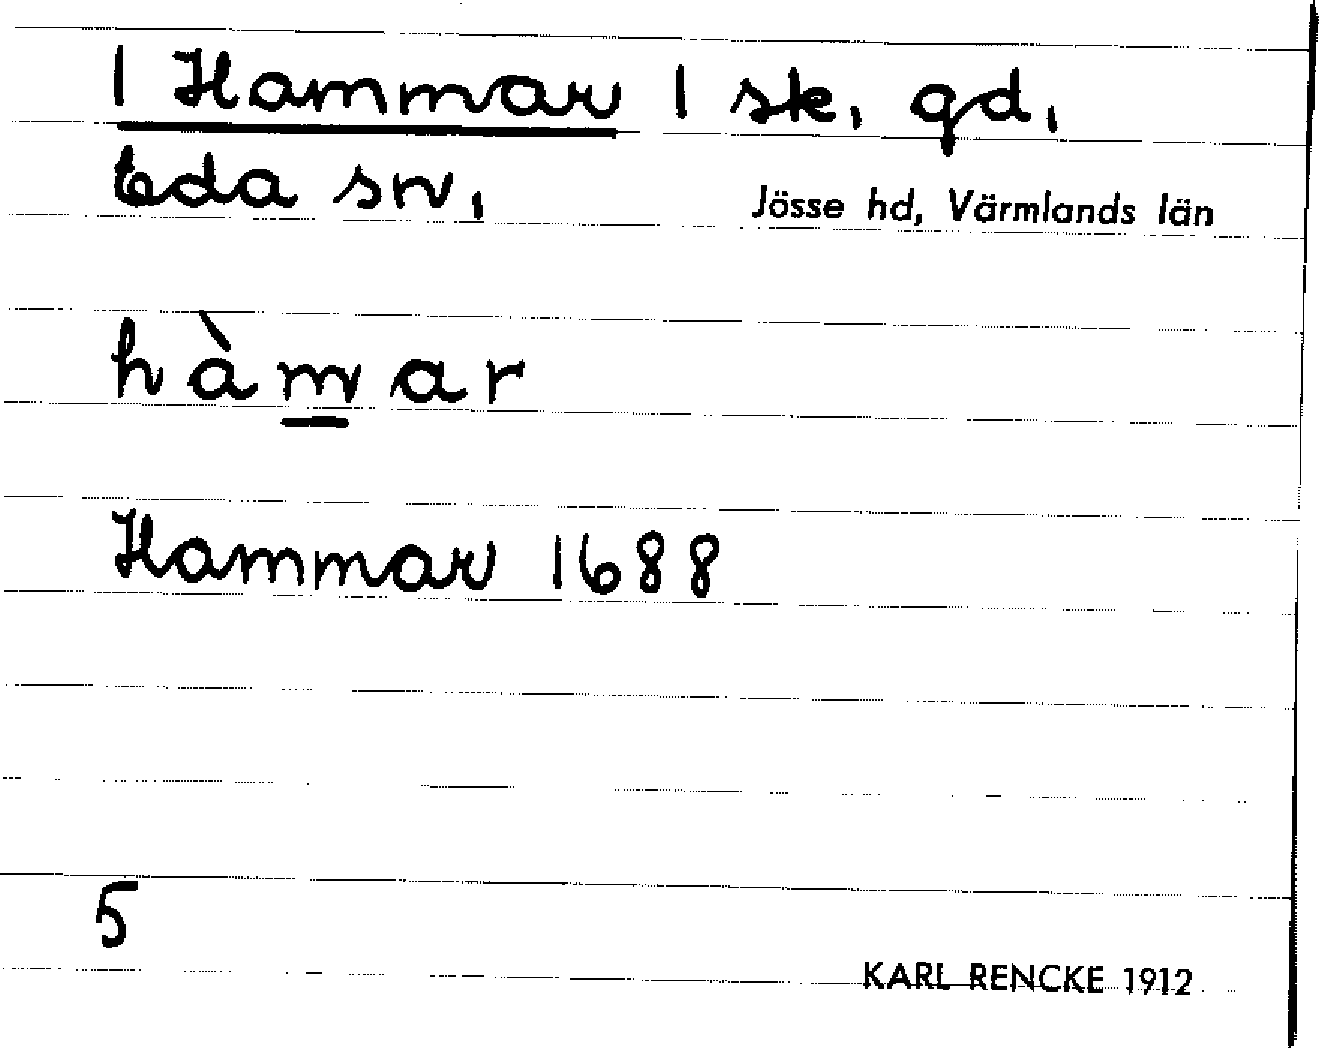 1 Hammar 1 sk. gd.
Eda sn.
Jösse hd, Värmlands län
hàmar
Hammar 1688
5
KARL RENCKE 1912